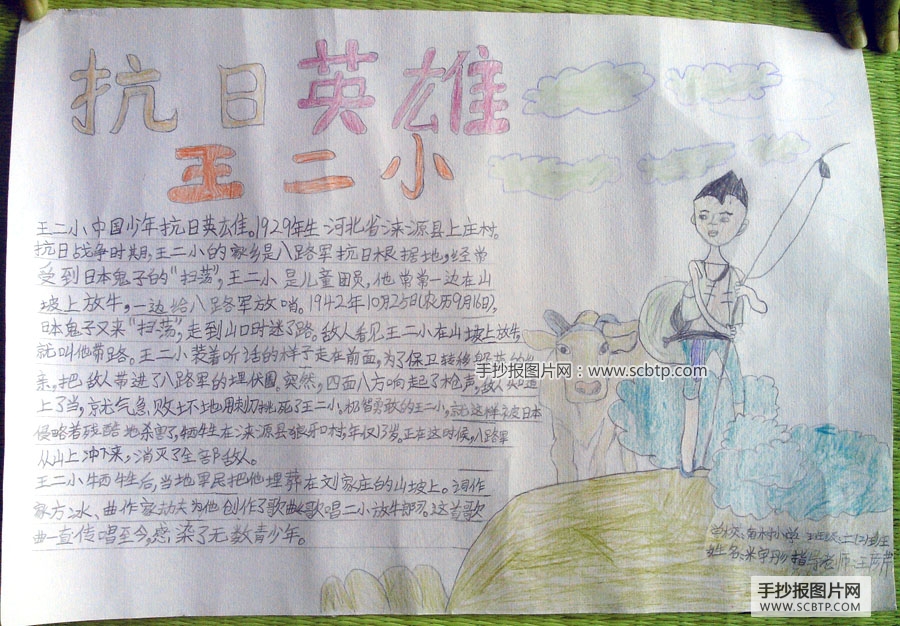 抗日英雄
王二小
王二小中国少年抗日英雄。1929年生河北省涞源县上庄村。
抗日战争时期,王二小的家乡是八路军抗日根据地,经常
受到日本鬼子的"扫荡",王二小是儿童团员,他常常一边在山
坡上放牛,一边给八路军放哨。1942年10月25日(农历9月16日),
日本鬼子又来"扫荡",走到山口时迷了路。敌人看见王二小在山坡上放牛,
就叫他带路。王二小装着听话的样子走在前面,为了保卫转移
手抄报图片网:www.scbtp.com
亲,把敌人带进了八路军的埋伏圈,突然,四面八方响起了枪声,敌人知道
上了当,就气急败坏地用刺刀挑死了王二小,机智勇敢的王二小,就这样被日本
侵略者残酷地杀害了,牺牲在涞源县狼牙口村,年仅13岁。正在这时候,八路军
从山上冲下来,消灭了全部敌人。
王二小牺牲后,当地军民把他埋葬在刘家庄的山坡上。词作
家方冰、曲作家劫夫为他创作了歌曲《歌唱二小放牛郎》。这首歌
曲一直传唱至今,感染了无数青少年。
学校:南村小学
姓名:米宇彤 指导老师:王彦芹
手抄报图片网
WWW.SCBTP.COM